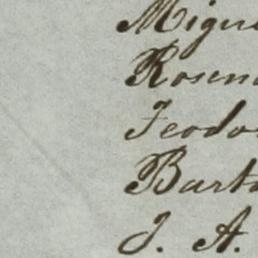 Migu
Rosen
Teodo
Barto
J. A.